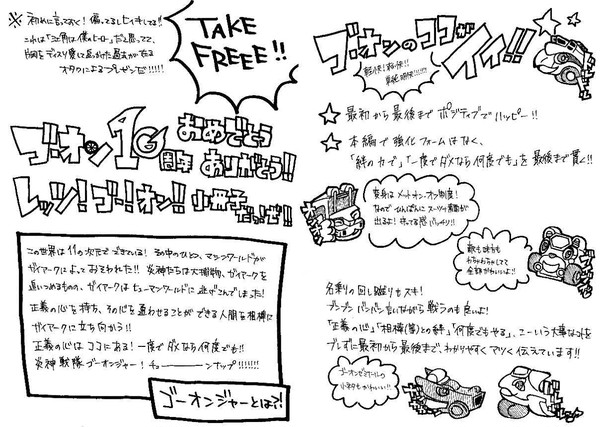 ※初めに言っておく！偏ってるしヒイキしてる!!
これは「江角は僕のヒーロー」だと思ってて、
オタクによるプレゼンだ!!!!!
TAKE
FREEE!!
ゴーオン10周年おめでとう
ありがとう!!
レッツ！ゴー！オン!!小冊子だぃぜ!!
この世界は11の次元でできている！その中のひとつ、マシンワールドが
ガイアークによっておそわれた!!炎神たちは大捕物、ガイアークを
追いつめるものの、ガイアークはヒューマンワールドに逃げこんでしまった！
正義の心を持ち、その心を重わせることができる人間を相棒に
ガイアークに立ち向かう!!
正義の心はココにある！一度でダメなら何度でも!!
炎神戦隊ゴーオンジャー！チョーーーーンナップ!!!!!!!
ゴーオンジャーとは?!
ゴーオンのココが
イイ!!
軽快！軽快!!
単純明快!!!!!
☆最初から最後までポジティブでハッピー!!
☆本編で強化フォームはなく、
「絆の力で」「一度でダメなら何度でも」を最後まで貫く!!
変身はメットオン・オン制度！
なので、ひんぱんにスーツが素面が
出るよ！守ってる感バッチリ!!
敵も味方も
わちゃわちゃしてて
全部かわいいよ!!
名乗りの回し蹴りもスキ！
ブンブンバンバン言いながら戦うのも良いよ！
「正義の心」「相棒(等)との絆」「何度でもやる」、こーいう大事なコトを
ブレずに最初から最後まで、わかりやすくアツく伝えています!!
ゴーオンゼミナールの
小ネタもかわいい!!